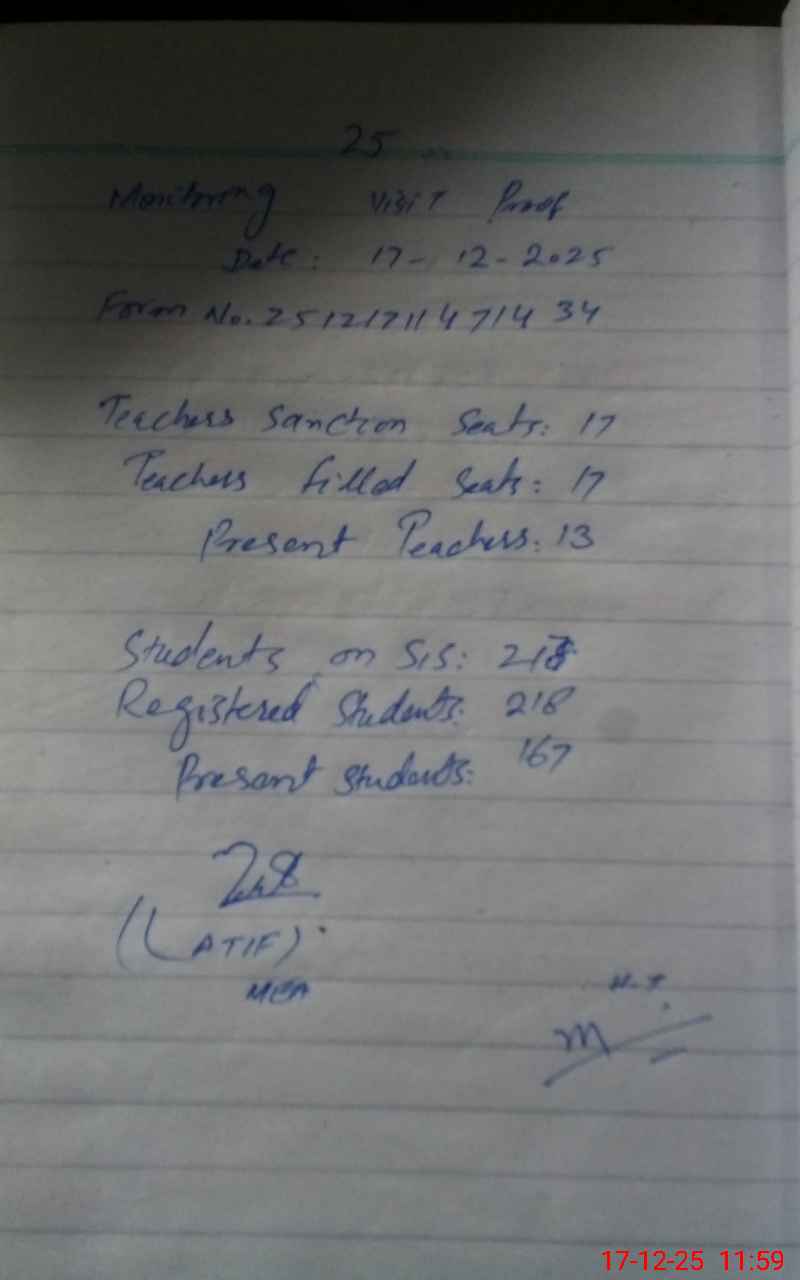 25
Monitoring Visit Proof
Date: 17-12-2025
Form No. 25121711471434
Teachers Sanction Seats: 17
Teachers filled Seats: 17
Present Teachers: 13
Students on SIS: 218
Registered Students: 218
Present Students: 167
(LATIF)
MEA
H.T
17-12-25 11:59